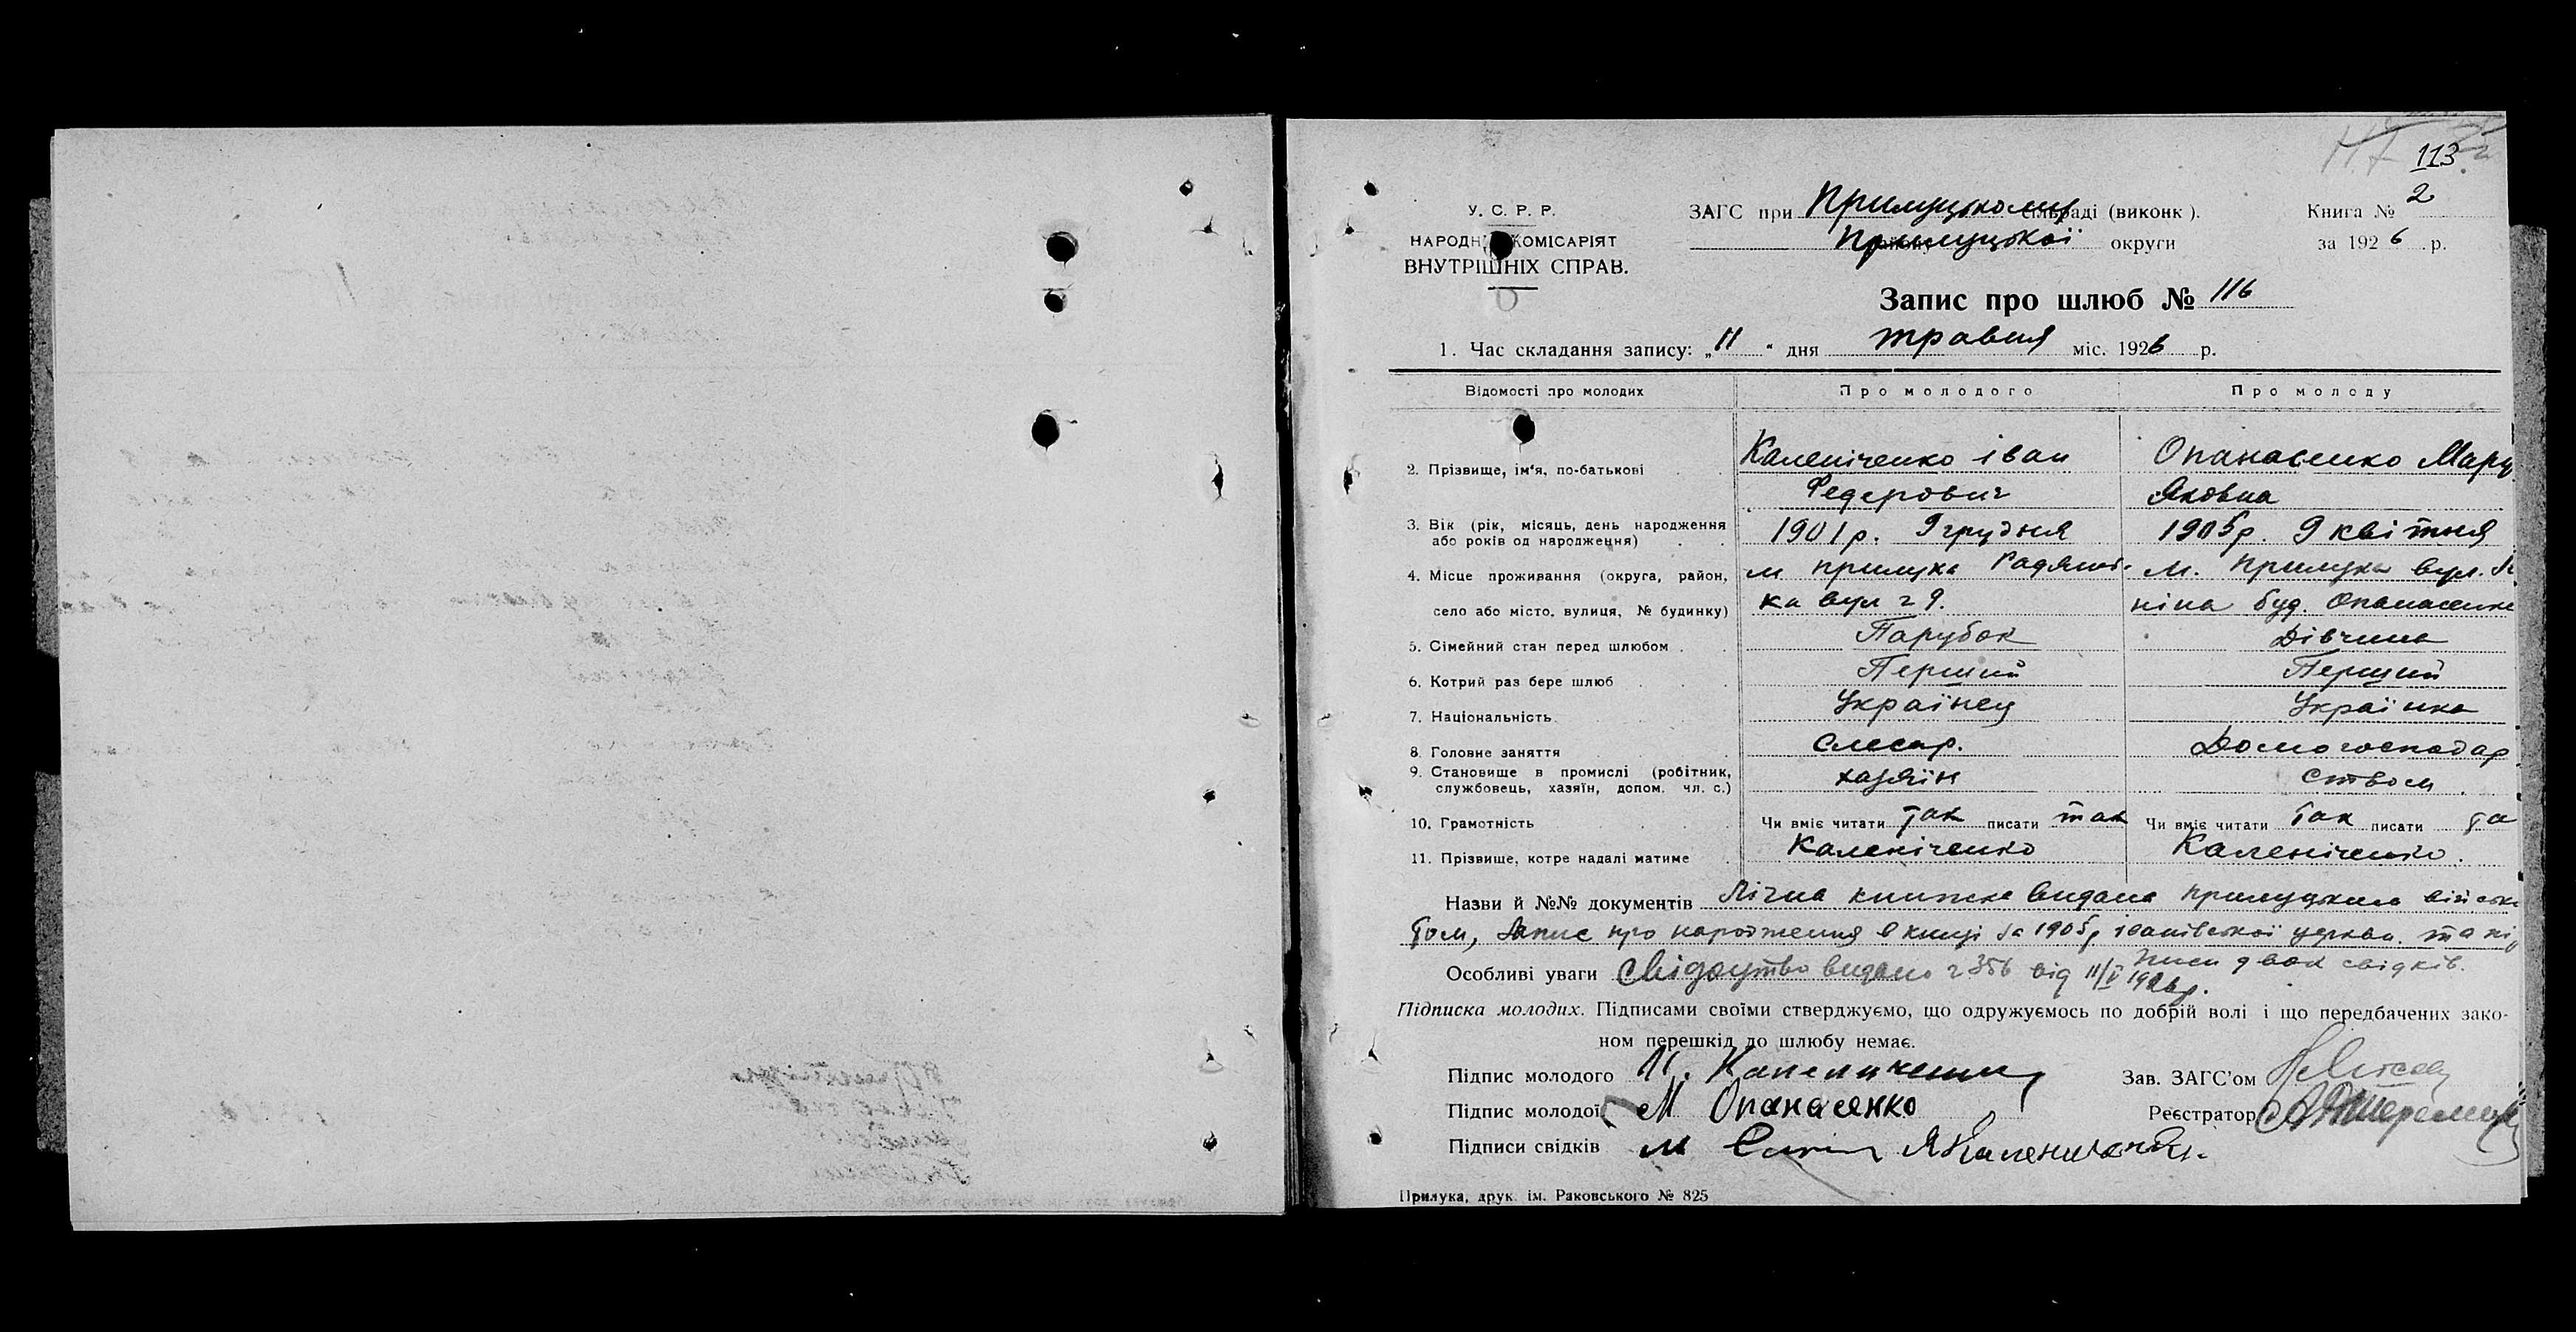 113
У. С. Р. Р.
ЗАГС при Прилуцькому сільраді (виконк).
Книга № 2
НАРОДН КОМІСАРІЯТ
Прилуцької округи
за 1926 р.
ВНУТРІШНІХ СПРАВ.
Запис про шлюб № 116
1. Час складання запису: „11“ дня травня міс. 1926 р.
Відомості про молодих Про молодого Про молоду
2. Прізвище, ім'я, по-батькові Каленіченко Іван Опанасенко Мару
Федерович Яковна
3. Вік (рік, місяць, день народження
або років од народження) 1901 р. 9 грудня 1905 р. 9 квітня
4. Місце проживання (округа, район, м Прилука Радянс- м. Прилука вул. Ле
село або місто, вулиця, № будинку) ка вул 29. ніна буд. Опанасенко
5. Сімейний стан перед шлюбом Парубок Дівчина
6. Котрий раз бере шлюб Перший Перший
7. Національність Українец Українка
8. Головне заняття Слесар. Домогосподар
9. Становище в промислі (робітник, хазяїн ством
службовець, хазяїн, допом. чл. с.)
10. Грамотність Чи вміє читати так писати так Чи вміє читати так писати та
11. Прізвище, котре надалі матиме Каленіченко Каленіченко.
Назви й №№ документів Лічна книжка видана Прилуцьким війсь
том, Запис про народження в книзі за 1905 р Іванівської церкви. та пі
писи двох свідків.
Особливі уваги Свідоцтво видано 2356 від 11/V 1926 р.
Підписка молодих. Підписами своїми стверджуємо, що одружуємось по добрій волі і що передбачених зако-
ном перешкід до шлюбу немає.
Підпис молодого И. Каленіченко Зав. ЗАГС'ом
Підпис молодої М Опанасенко Реєстратор
Підписи свідків М Я Каленіченко
Прилука, друк. ім. Раковського № 825